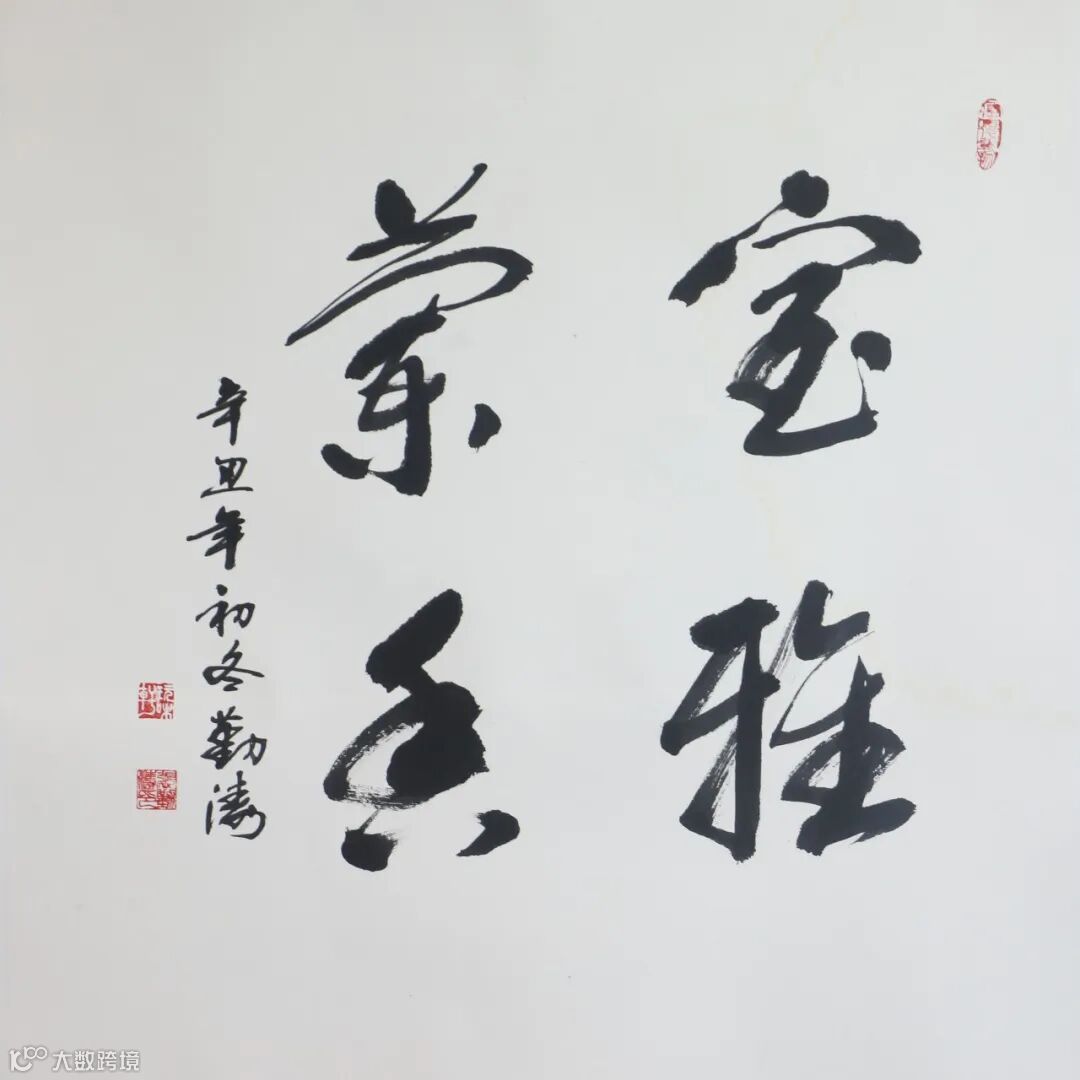 室雅
蘭香
辛丑年初冬勤濤
大数跨境